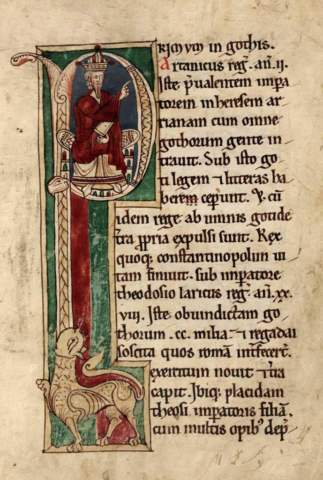 PRIMVM in gothis.
Artanicus reg̅. an̅. ii.
Iste p̅ualentem impa
torem in heresem ar
rianam cum omne
gothorum gente in
trauit. Sub isto go
ti legem & litteras ha
berem ceper̅unt. Et cū
idem rege ab umnis gotide
t̅ra p̅pria expulsi sunt. Rex
quoq; constantinopolim ui
tam finiuit. sub imperatore
theodosio laricus reg̅. an̅. xx.
viii. Iste obuindictam go
thorum .cc. milia & regadai
soscita quos romā inṫfecert̅.
exercitum nouit & t̅ra
capit. Ibiq; placidam
theosi imperatoris filiā.
cum multis opib; dep̅